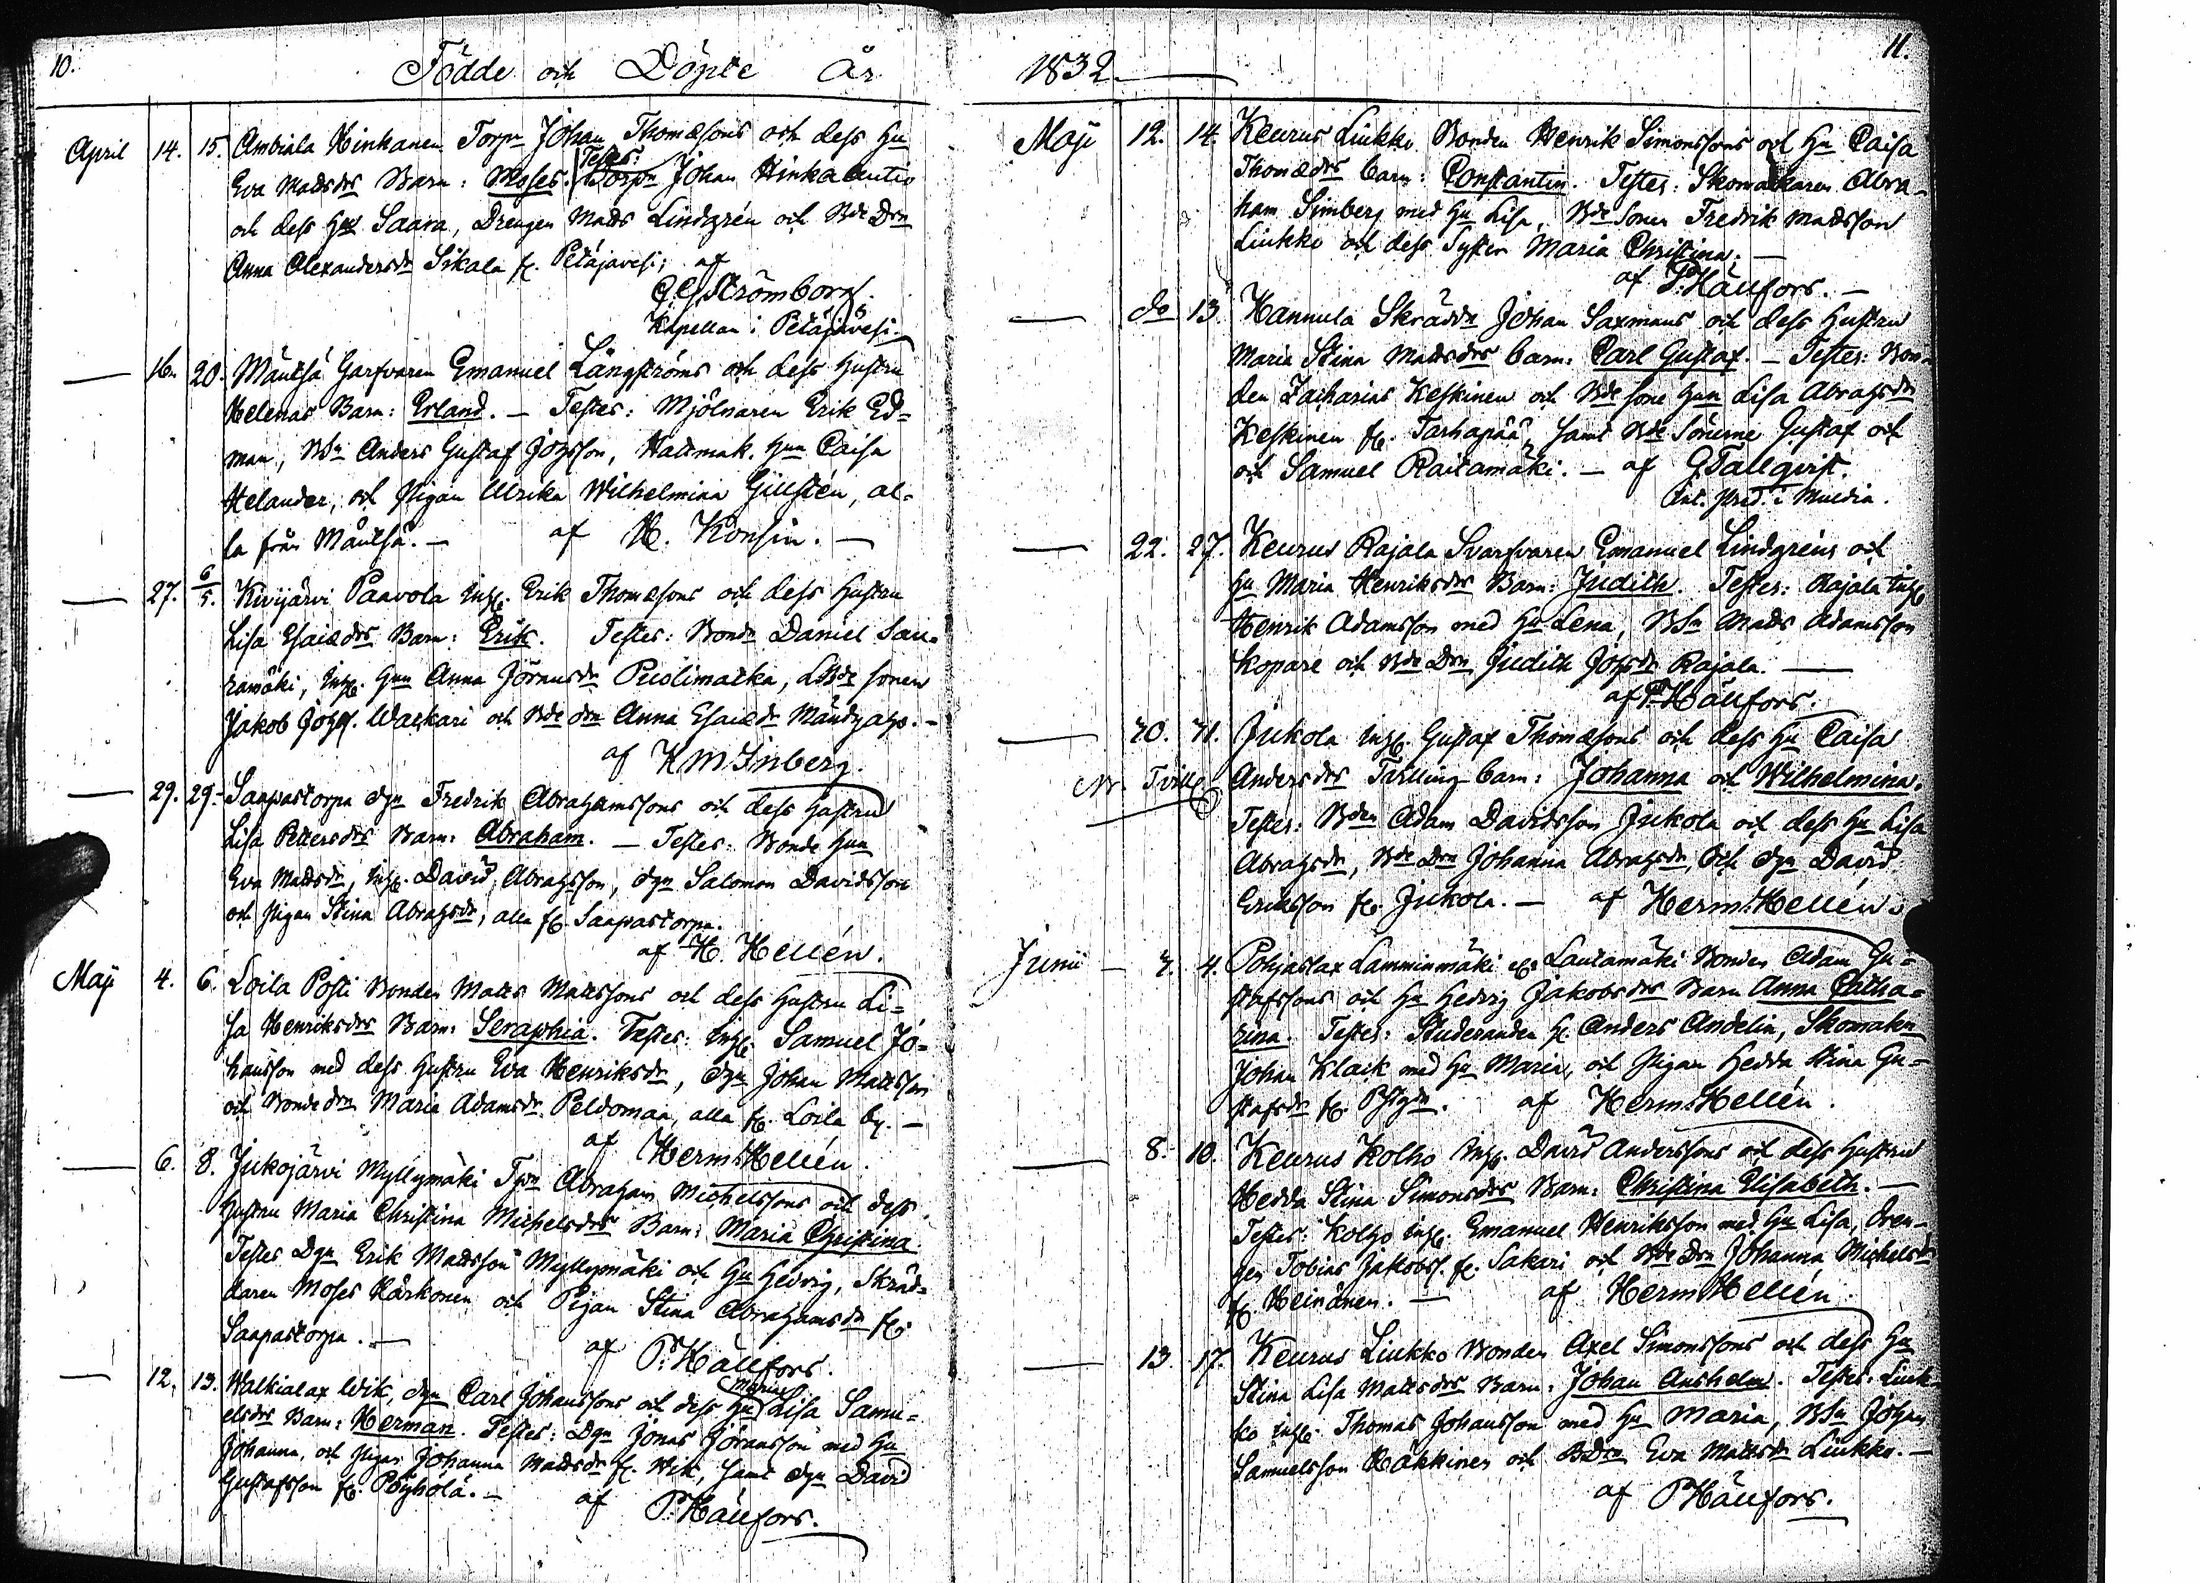 10.
Födde och Döpte År
April 14. 15. Ambiala Hinkanen Torpn Johan Thomæsons och dess Hu
Testes:
Eva Matsdrs Barn: Moses. Torpn Johan Hinka
och dess Hu Saara, Drengen Mats Lindgrén och Bde Drn
Anna Alexandersdr Sikala fr. Petäjävesi; af
G. G. Strömborg.
Kapellan i Petäjävesi.
— 16. 20. Mäntsä Garfvaren Emanuel Långströms och dess Hustru
Helenas Barn: Erland. — Testes: Mjölnaren Erik Ed-
man, BSn Anders Gustaf Johsson, Hattmak. Hun Caisa
Helander, och Pigan Ulrika Wilhelmina Gillstén, al-
la från Mäntsä. — af H. Konsin. —
— 27. 6/5. Kivijärvi Paavola Inh. Erik Thomæsons och dess Hustru
Lisa Esaiædrs Barn: Erik. Testes: Bondn Daniel Sau-
ramäki, Inh. Hun Anna Jöransdr Puolimatka, LBde sonen
Jakob Johs. Waskari och Bde drn Anna Esaiædr
af K M Inberg.
— 29. 29. Saapastorpa dgn Fredrik Abrahamssons och dess Hustru
Lisa Pettersdrs Barn: Abraham. — Testes: Bonde Hun
Eva Mattsdr, Inh. David Abrahsson, dgn Salomon Davidsson
och Pigan Stina Abrahsdr, alla fr. Saapastorpa.
af H. Hellén.
Maji 4. 6. Loila Posti Bonden Matts Mattssons och dess Hustru Li-
sa Henriksdrs Barn: Seraphia. Testes: Inh. Samuel Jo-
hansson med dess Hustru Eva Henriksdr, dgn Johan Mattsson
och Bonde drn Maria Adamsdr Peldomaa, alla fr. Loila by. —
af Herm. Hellén.
— 6. 8. Jukojärvi Myllymäki Tpn Abraham Michelssons och dess
Hustru Maria Christina Michelsdrs Barn: Maria Christina
Testes Dgn Erik Mattsson Myllymäki och Hu Hedvig, Skräd-
daren Moses Kärkonen och Pigan Stina Abrahamsdr fr.
Saapastorpa. — af P. Hällfors.
Maria
— 12. 13. Walkialax Wik, dgn Carl Johanssons och dess Hu Lisa Samu-
elsdrs Barn: Herman. Testes: Dgn Jonas Jöransson med Hu
Johanna, och Pigan Johanna Mattsdr fr. Wik, samt dgn David
Gustafsson fr. Pöyhölä. — af P. Hällfors.
11.
1832
Maji 12. 14. Keurus Liukko Bonden Henrik Simonssons och Hu Caisa
Thomædrs barn: Constantin. Testes: Skomakaren Abra-
ham Simberg med Hu Lisa, Bde Sonen Fredrik Mattsson
Liukko och dess Syster Maria Christina. —
af P. Hällfors. —
— do 13. Hannula Skräddn Johan Saxmans och dess Hustru
Maria Stina Mattsdrs barn: Carl Gustaf. — Testes: Bon-
den Zacharias Keskinen och Bde sone Hun Lisa Abrahsdr
Keskinen fr. Tarhapää, samt Bde Sönerne Gustaf och
och Samuel Raitamäki. — af G Tallqvist.
Ant. Pred. i Muldia.
— 22. 27. Keurus Rajala Svarfvaren Emanuel Lindgréns och
Hu Maria Henriksdrs Barn: Judith. Testes: Rajala Inh.
Henrik Adamsson med Hu Lena, BSn Matts Adamsson
Kopare och Bde Drn Judith Johsdr Rajala. —
af P. Hällfors.
— 30. 31. Jukola Inh. Gustaf Thomæsons och dess Hu Caisa
Nr. Tvill. Andersdrs Tvilling barn: Johanna och Wilhelmina.
Testes: Bdn Adam Davidsson Jukola och dess Hu Lisa
Abrahsdr, Bde Drn Johanna Abrahsdr, och dgn David
Eriksson fr. Jukola. — af Herm. Hellén.
Junii — 3. 4. Pohjaslax Lamminmäki Lautamäki Bonden Adam Gu-
stafssons och Hu Hedvig Jakobsdrs Barn Anna Catha-
rina. Testes: Studeranden H. Anders Andelin, Skomakn
Johan Klack med Hu Maria, och Pigan Hedda Stina Gu-
stafsdr fr. af Herm. Hellén.
— 8. 10. Keurus Kolho Inh. David Anderssons och dess Hustru
Hedda Stina Simonsdrs Barn: Christina Elisabeth. —
Testes: Kolho Inh. Emanuel Henriksson med Hu Lisa, dren-
gen Tobias Jakobss. fr. Sakari och Bde Drn Johanna Michelsdr
fr. Heinänen. — af Herm Hellén.
— 13. 17. Keurus Liukko Bonden Axel Simonssons och dess Hu
Stina Lisa Mattsdrs Barn: Johan Anshelm. Testes: Liuk-
ko Inh. Thomas Johansson med Hu Maria, BSn Johan
Samuelsson Häkkinen och BDrn Eva Mattsdr Liukko. —
af P Hällfors.